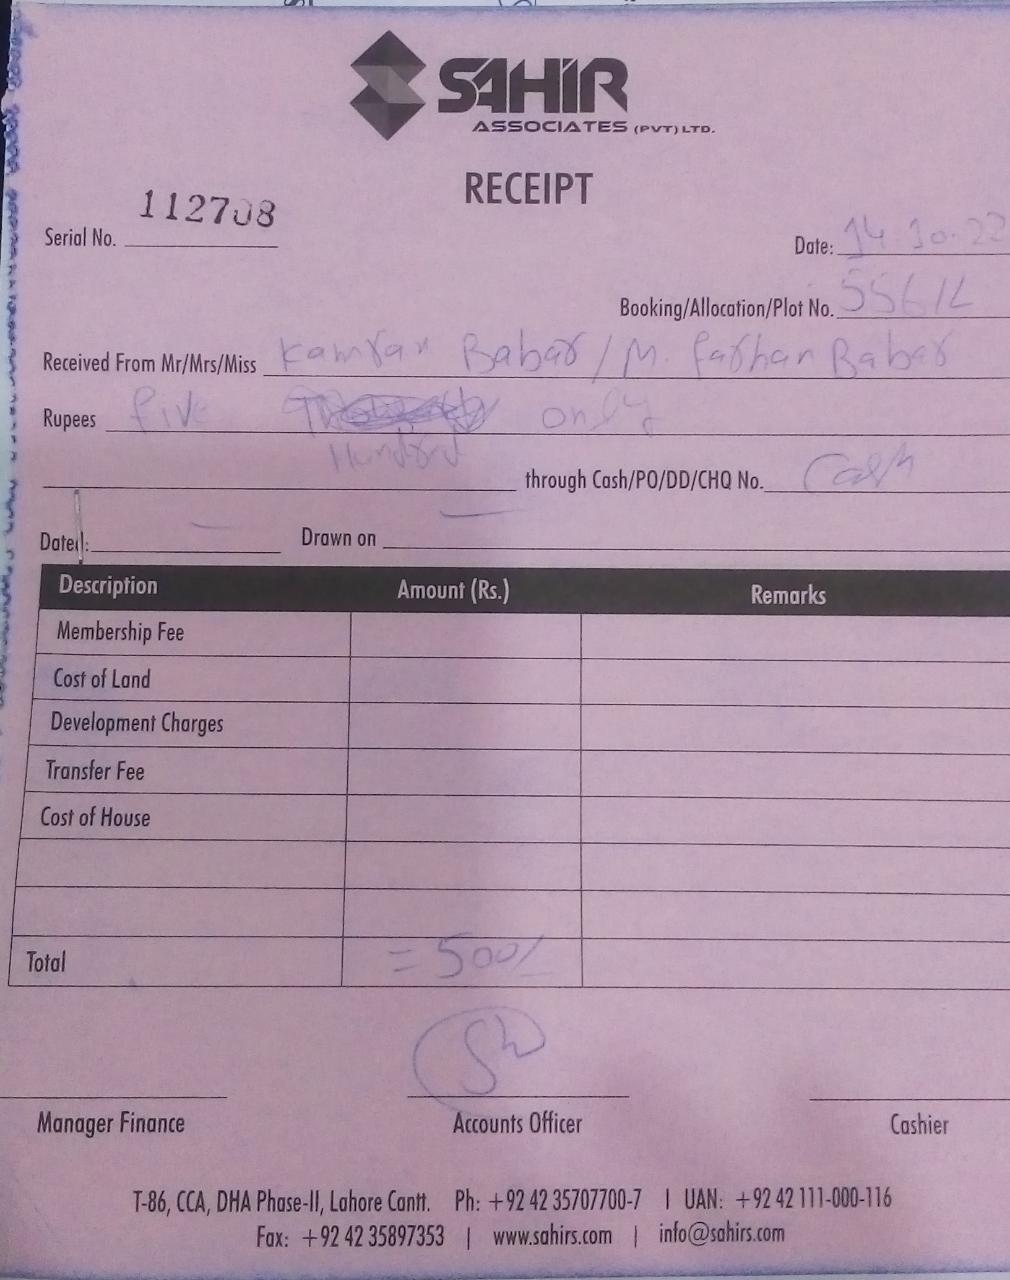 SAHIR
ASSOCIATES (PVT) LTD.
RECEIPT
Serial No. 112708
Date: 14-10-22
Booking/Allocation/Plot No. 556/L
Received From Mr/Mrs/Miss Kamran Babar / M. Farhan Babar
Rupees five only
Hundord
through Cash/PO/DD/CHQ No. Cash
Dated: — Drawn on —
Description Amount (Rs.) Remarks
Membership Fee
Cost of Land
Development Charges
Transfer Fee
Cost of House
Total = 500/
Manager Finance Accounts Officer Cashier
T-86, CCA, DHA Phase-II, Lahore Cantt. Ph: +92 42 35707700-7 | UAN: +92 42 111-000-116
Fax: +92 42 35897353 | www.sahirs.com | info@sahirs.com